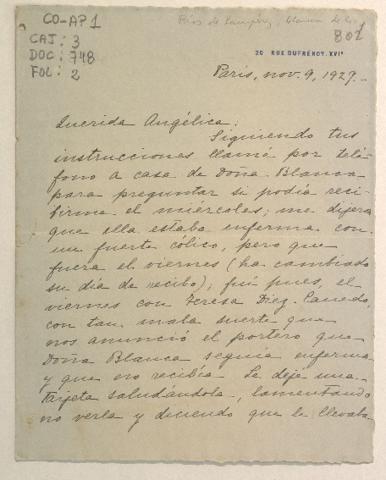 CO-AP1
CAJ: 3
DOC: 748
FOL: 2
Ríos de Lampérez, Blanca de los
802
20 RUE DUFRÉNOY. XVIᵉ
Paris, nov. 9, 1929.
Querida Angélica:
Siguiendo tus
instrucciones llamé por telé-
fono a casa de Doña Blanca
para preguntar si podía reci-
birme el miércoles; me dijeron
que ella estaba enferma con
un fuerte cólico, pero que
fuera el viernes (ha cambiado
su día de recibo); fuí pues, el
viernes con Teresa Diez-Canedo,
con tan mala suerte que
nos anunció el portero que
Doña Blanca seguía enferma
y que no recibía. Le dejé una
tarjeta saludándola, lamentando
no verla y diciendo que le llevaba